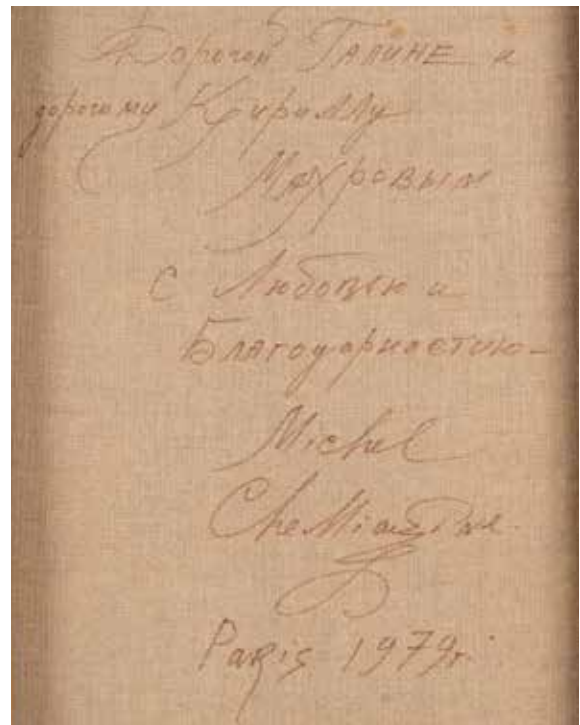 Дорогой Галине и
дорогому Кириллу
Махровым
с Любовью и
Благодарностию-
Michel
Chemiakine.
Paris 1979г.